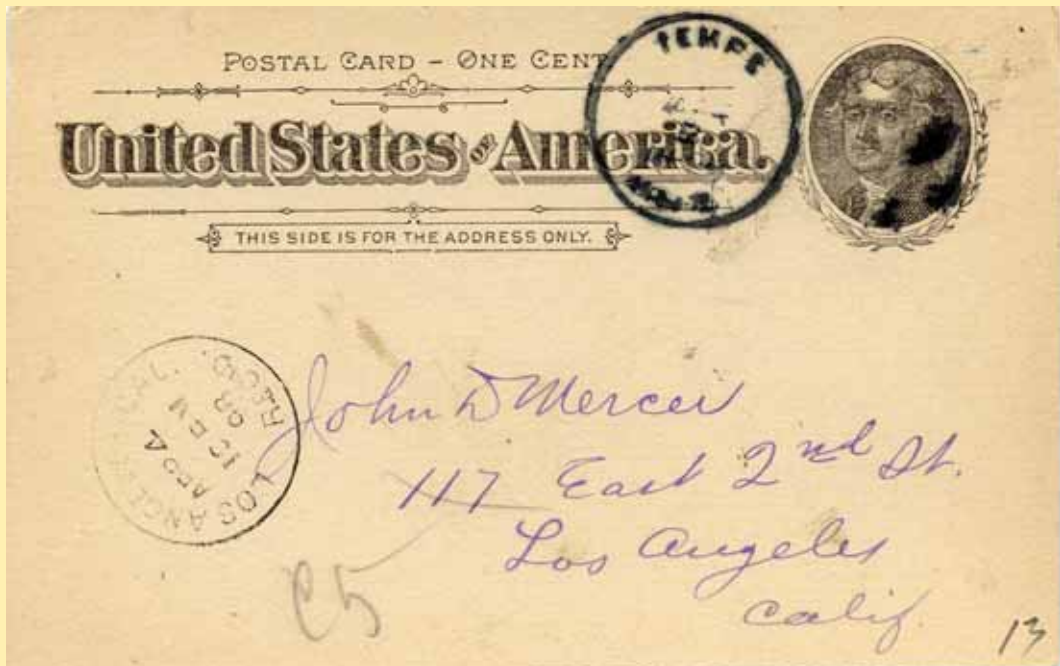 POSTAL CARD – ONE CENT
United States OF America.
THIS SIDE IS FOR THE ADDRESS ONLY.
TEMPE
LOS ANGELES, CAL.
REC'D.
98
John D Mercer
117 East 2nd St.
Los Angeles
Calif.
C5
13